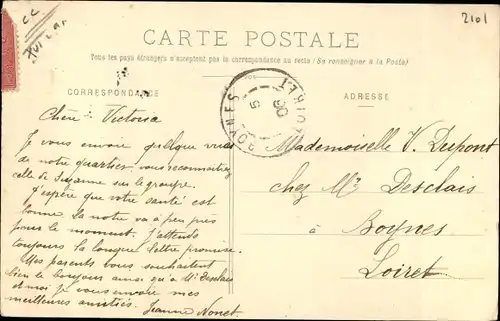 2101
CARTE POSTALE
Tous les pays étrangers n'acceptent pas la correspondance au recto (Se renseigner à la Poste)
CORRESPONDANCE
ADRESSE
BOYNES LOIRET
5
06
Chère Victoria
Je vous envoie quelque vues
de notre quartier, vous reconnaîtrez
celle de Suzanne sur le groupe.
J'espère que votre santé est
bonne la notre va à peu près
pour le moment. J'attends
toujours la longue lettre promise.
Mes parents vous souhaitent
bien le bonjour ainsi qu'a Mr Desclais
et moi je vous envoie mes
meilleures amitiés.
Jeanne Nonet
Mademoiselle V. Dupont
chez Mr Desclais
à
Boynes
Loiret